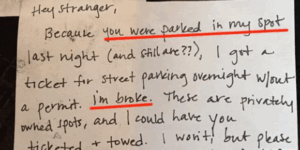 Hey Stranger,
Because you were parked in my spot
last night (and still are??), I got a
ticket for street parking overnight w/out
a permit. I'm broke. These are privately
owned spots, and I could have you
ticketed + towed. I won't, but please